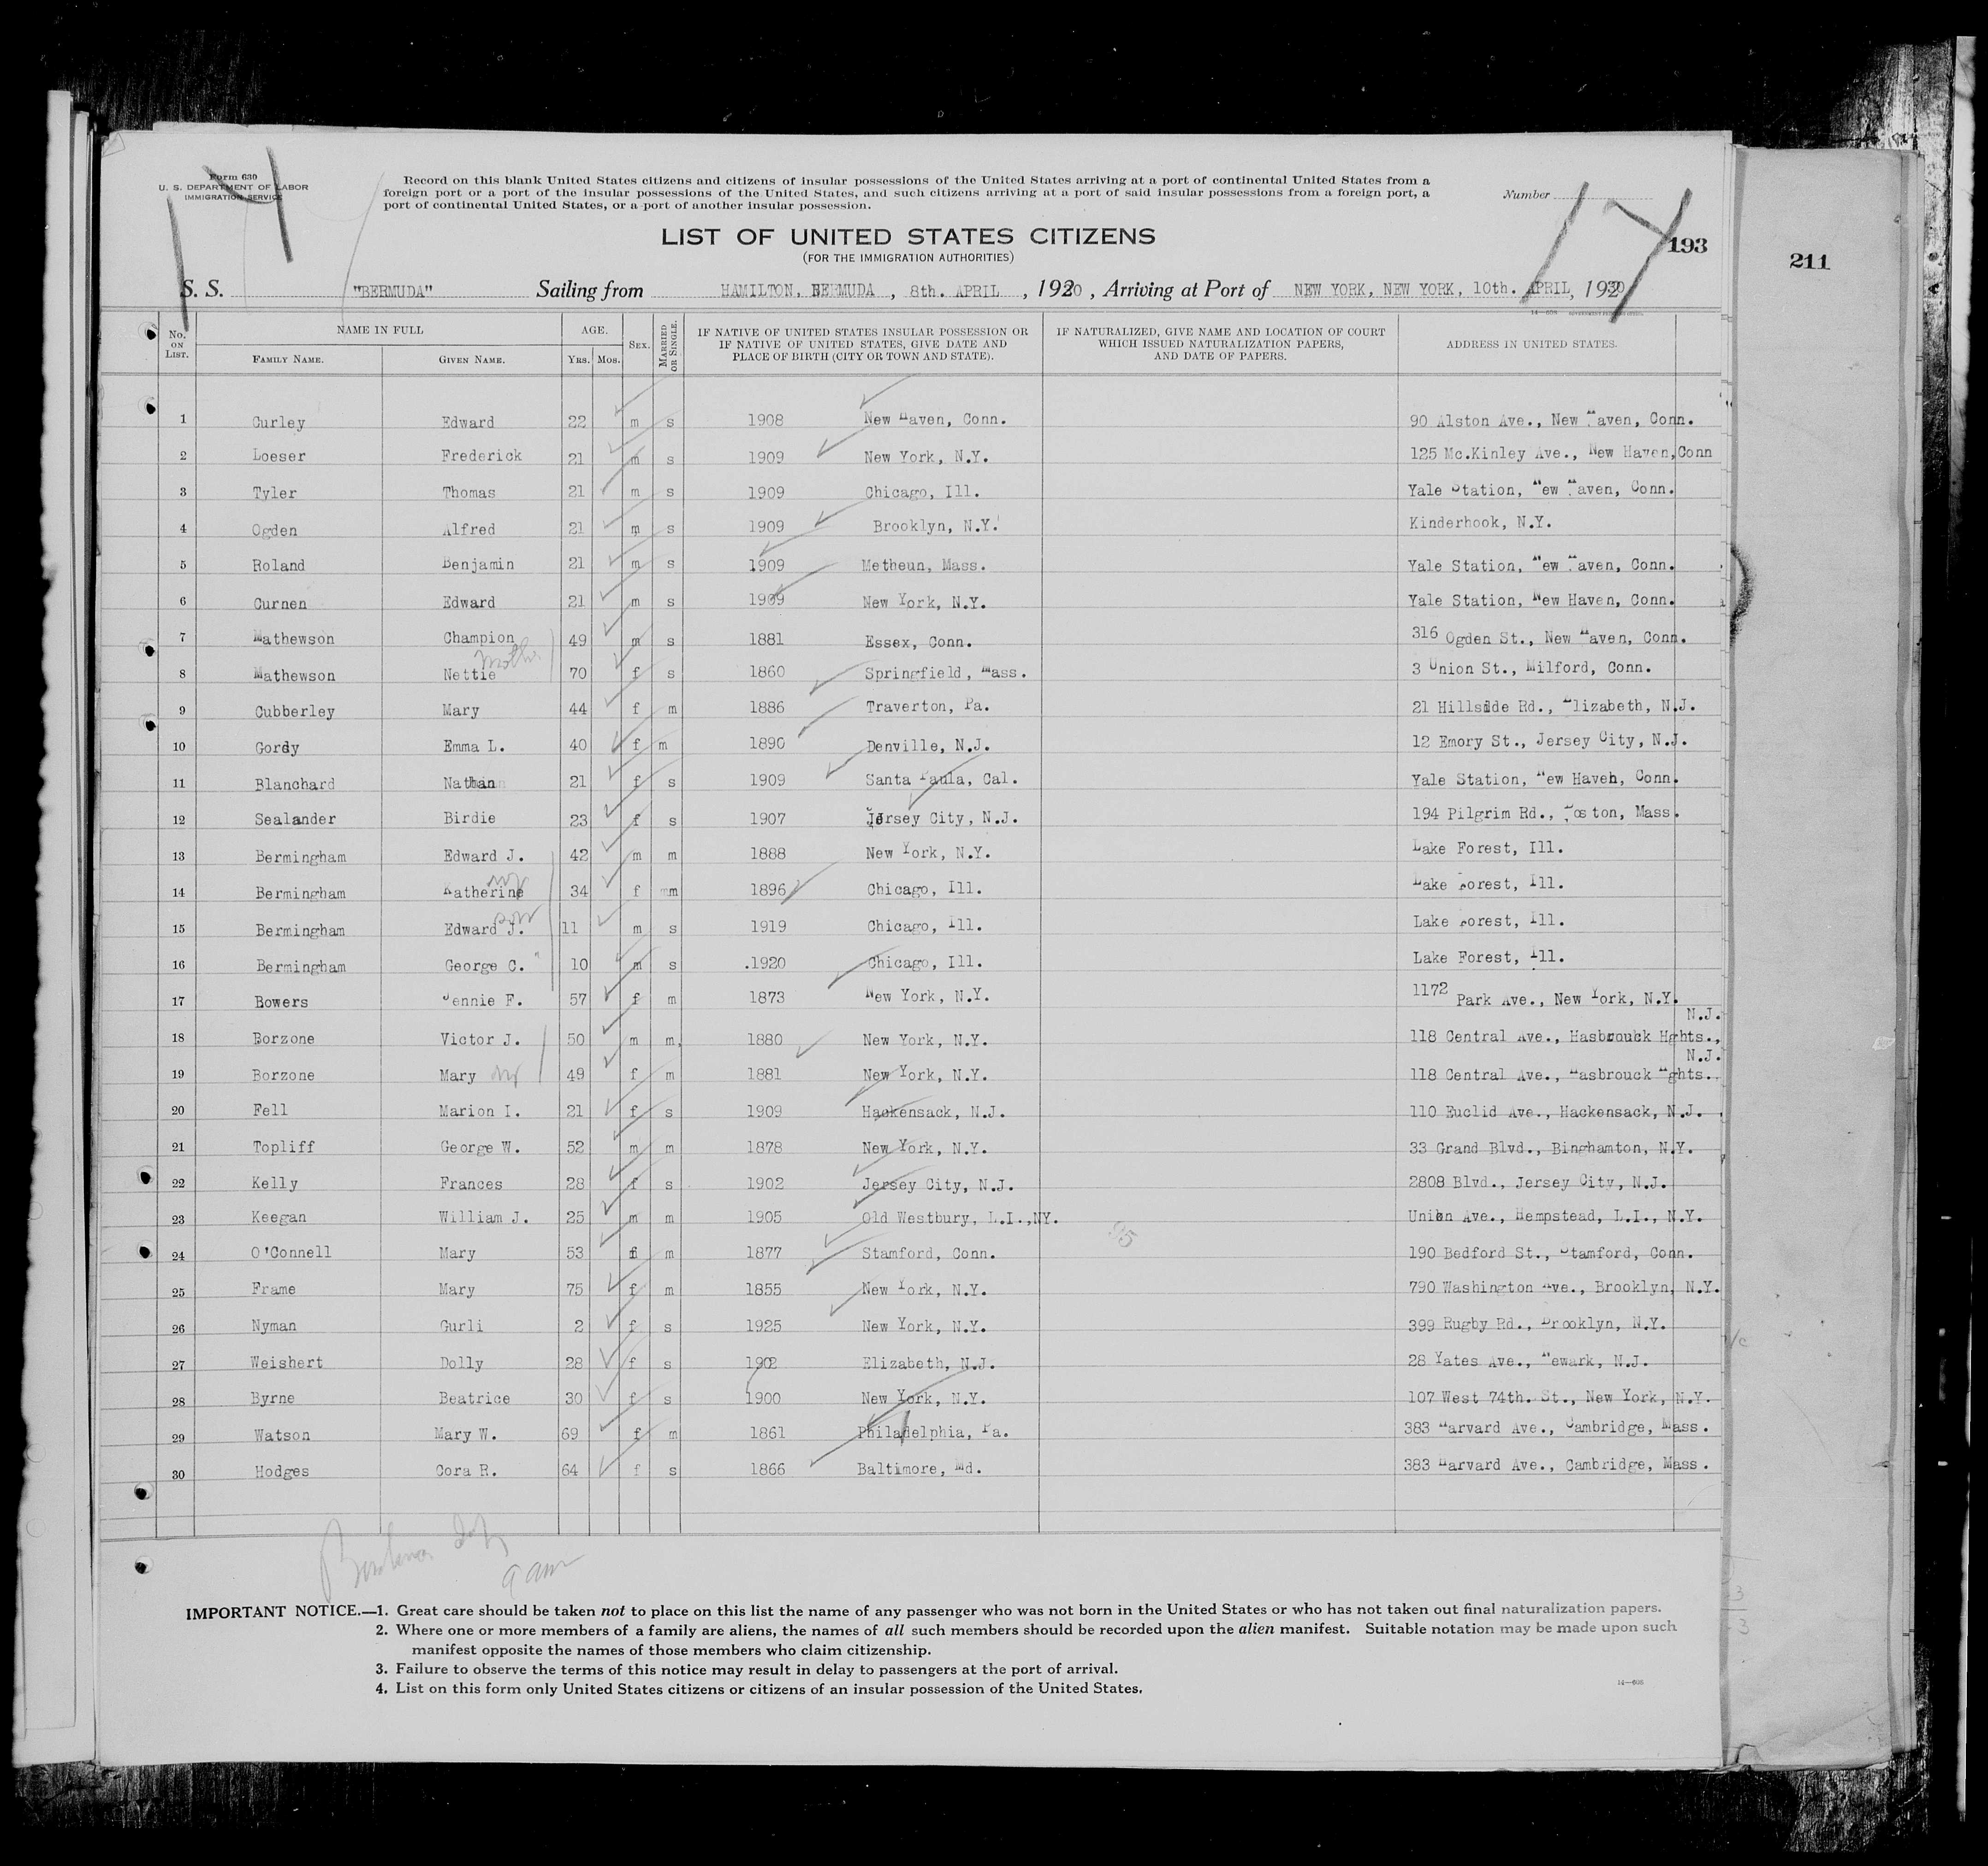 Form 630
U. S. DEPARTMENT OF LABOR
IMMIGRATION SERVICE
Record on this blank United States citizens and citizens of insular possessions of the United States arriving at a port of continental United States from a
foreign port or a port of the insular possessions of the United States, and such citizens arriving at a port of said insular possessions from a foreign port, a
port of continental United States, or a port of another insular possession.
Number
17
193
211
LIST OF UNITED STATES CITIZENS
(FOR THE IMMIGRATION AUTHORITIES)
S. S. "BERMUDA" Sailing from HAMILTON, BERMUDA, 8th. APRIL, 1930, Arriving at Port of NEW YORK, NEW YORK, 10th. APRIL, 1930
14—608
No. ON LIST. NAME IN FULL AGE. SEX. MARRIED OR SINGLE. IF NATIVE OF UNITED STATES INSULAR POSSESSION OR IF NATIVE OF UNITED STATES, GIVE DATE AND PLACE OF BIRTH (CITY OR TOWN AND STATE). IF NATURALIZED, GIVE NAME AND LOCATION OF COURT WHICH ISSUED NATURALIZATION PAPERS, AND DATE OF PAPERS. ADDRESS IN UNITED STATES.
FAMILY NAME. GIVEN NAME. YRS. MOS.
1 Curley Edward 22 m s 1908 New Haven, Conn. 90 Alston Ave., New Haven, Conn.
2 Loeser Frederick 21 m s 1909 New York, N.Y. 125 Mc.Kinley Ave., New Haven, Conn
3 Tyler Thomas 21 m s 1909 Chicago, Ill. Yale Station, New Haven, Conn.
4 Ogden Alfred 21 m s 1909 Brooklyn, N.Y. Kinderhook, N.Y.
5 Roland Benjamin 21 m s 1909 Metheun, Mass. Yale Station, New Haven, Conn.
6 Curnen Edward 21 m s 1909 New York, N.Y. Yale Station, New Haven, Conn.
7 Mathewson Champion 49 m s 1881 Essex, Conn. 316 Ogden St., New Haven, Conn.
mother
8 Mathewson Nettie 70 f s 1860 Springfield, Mass. 3 Union St., Milford, Conn.
9 Cubberley Mary 44 f m 1886 Traverton, Pa. 21 Hillside Rd., Elizabeth, N.J.
10 Gordy Emma L. 40 f m 1890 Denville, N.J. 12 Emory St., Jersey City, N.J.
11 Blanchard Nathan 21 f s 1909 Santa Paula, Cal. Yale Station, New Haven, Conn.
12 Sealander Birdie 23 f s 1907 Jersey City, N.J. 194 Pilgrim Rd., Boston, Mass.
13 Bermingham Edward J. 42 m m 1888 New York, N.Y. Lake Forest, Ill.
wf
14 Bermingham Katherine 34 f m 1896 Chicago, Ill. Lake Forest, Ill.
son
15 Bermingham Edward J. 11 m s 1919 Chicago, Ill. Lake Forest, Ill.
16 Bermingham George C. " 10 m s .1920 Chicago, Ill. Lake Forest, Ill.
17 Bowers Jennie F. 57 f m 1873 New York, N.Y. 1172 Park Ave., New York, N.Y.
N.J.
18 Borzone Victor J. 50 m m. 1880 New York, N.Y. 118 Central Ave., Hasbrouck Hghts.,
N.J.
19 Borzone Mary wf 49 f m 1881 New York, N.Y. 118 Central Ave., Hasbrouck Hghts.,
20 Fell Marion I. 21 f s 1909 Hackensack, N.J. 110 Euclid Ave., Hackensack, N.J.
21 Topliff George W. 52 m m 1878 New York, N.Y. 33 Grand Blvd., Binghamton, N.Y.
22 Kelly Frances 28 f s 1902 Jersey City, N.J. 2808 Blvd., Jersey City, N.J.
23 Keegan William J. 25 m m 1905 Old Westbury, L.I.,NY. Union Ave., Hempstead, L.I., N.Y.
24 O'Connell Mary 53 f m 1877 Stamford, Conn. 190 Bedford St., Stamford, Conn.
25 Frame Mary 75 f m 1855 New York, N.Y. 790 Washington Ave., Brooklyn, N.Y.
26 Nyman Gurli 2 f s 1925 New York, N.Y. 399 Rugby Rd., Brooklyn, N.Y.
27 Weishert Dolly 28 f s 1902 Elizabeth, N.J. 28 Yates Ave., Newark, N.J.
28 Byrne Beatrice 30 f s 1900 New York, N.Y. 107 West 74th. St., New York, N.Y.
29 Watson Mary W. 69 f m 1861 Philadelphia, Pa. 383 Harvard Ave., Cambridge, Mass.
30 Hodges Cora R. 64 f s 1866 Baltimore, Md. 383 Harvard Ave., Cambridge, Mass.
9 am
IMPORTANT NOTICE.—1. Great care should be taken not to place on this list the name of any passenger who was not born in the United States or who has not taken out final naturalization papers.
2. Where one or more members of a family are aliens, the names of all such members should be recorded upon the alien manifest. Suitable notation may be made upon such
manifest opposite the names of those members who claim citizenship.
3. Failure to observe the terms of this notice may result in delay to passengers at the port of arrival.
4. List on this form only United States citizens or citizens of an insular possession of the United States.
14—608